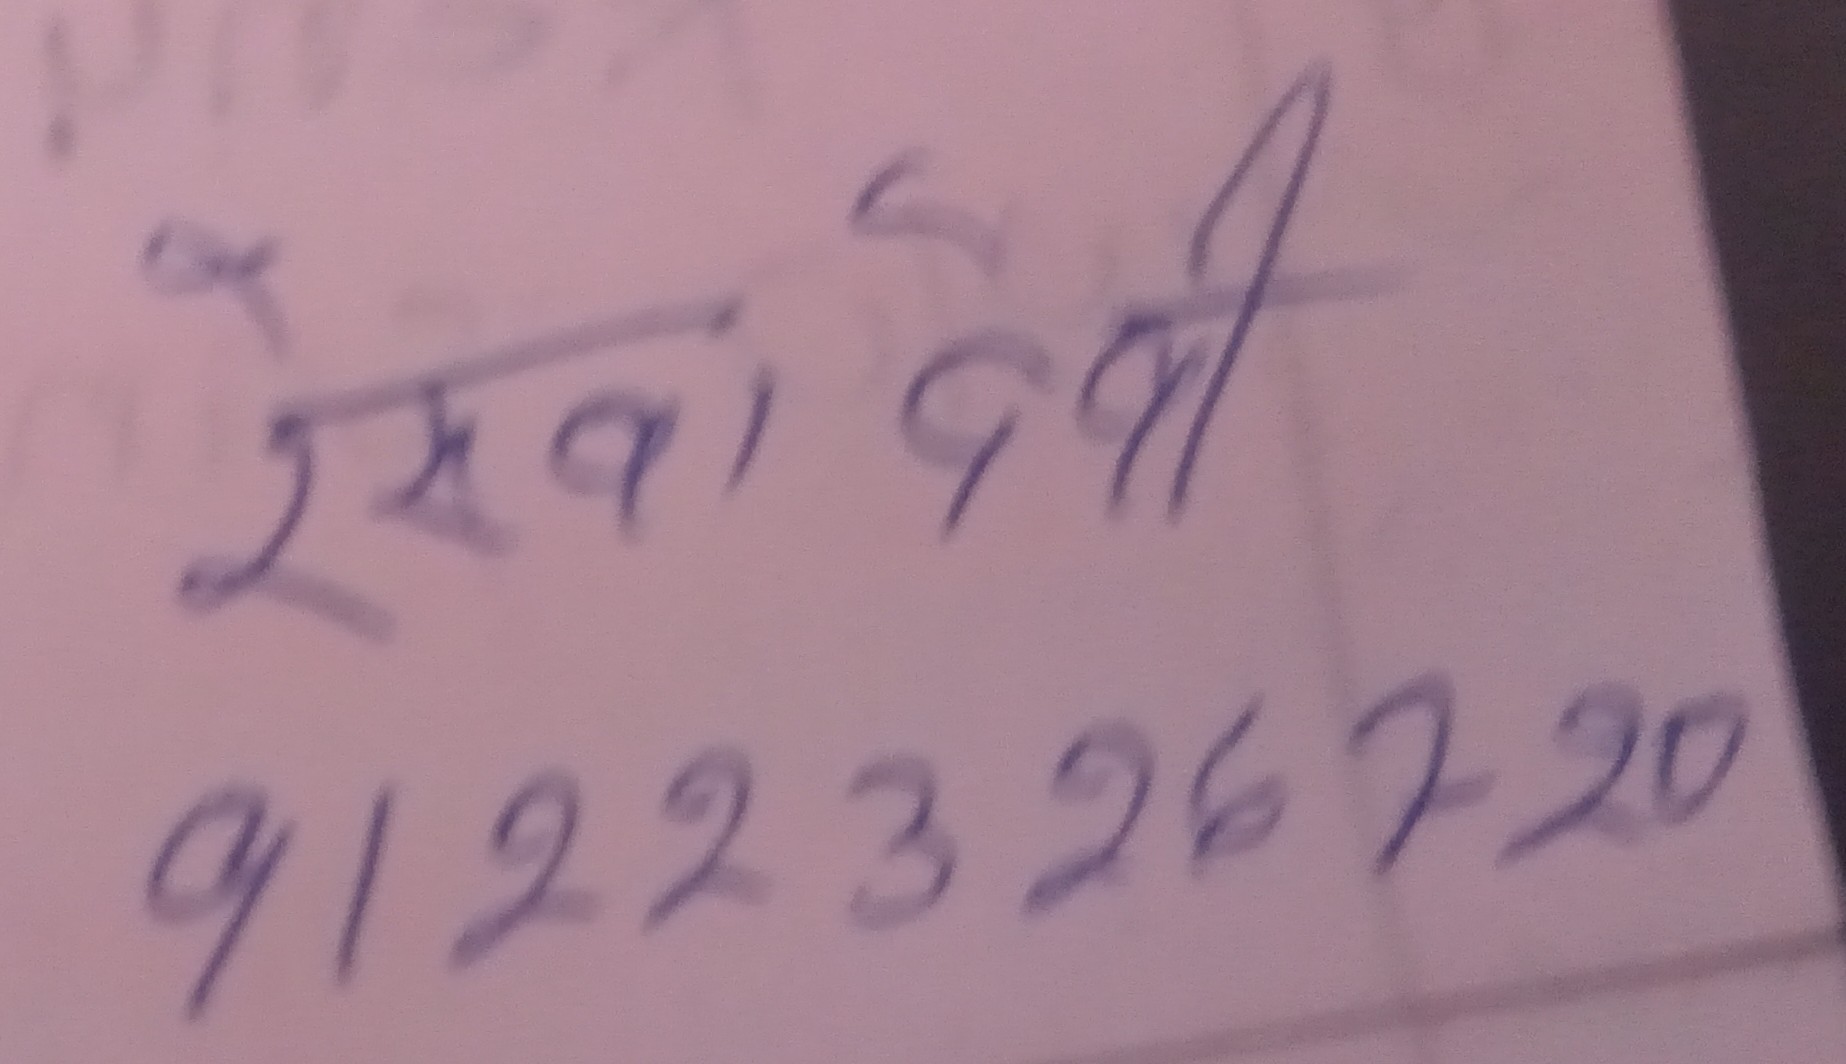 रेखा देवी
9122326720